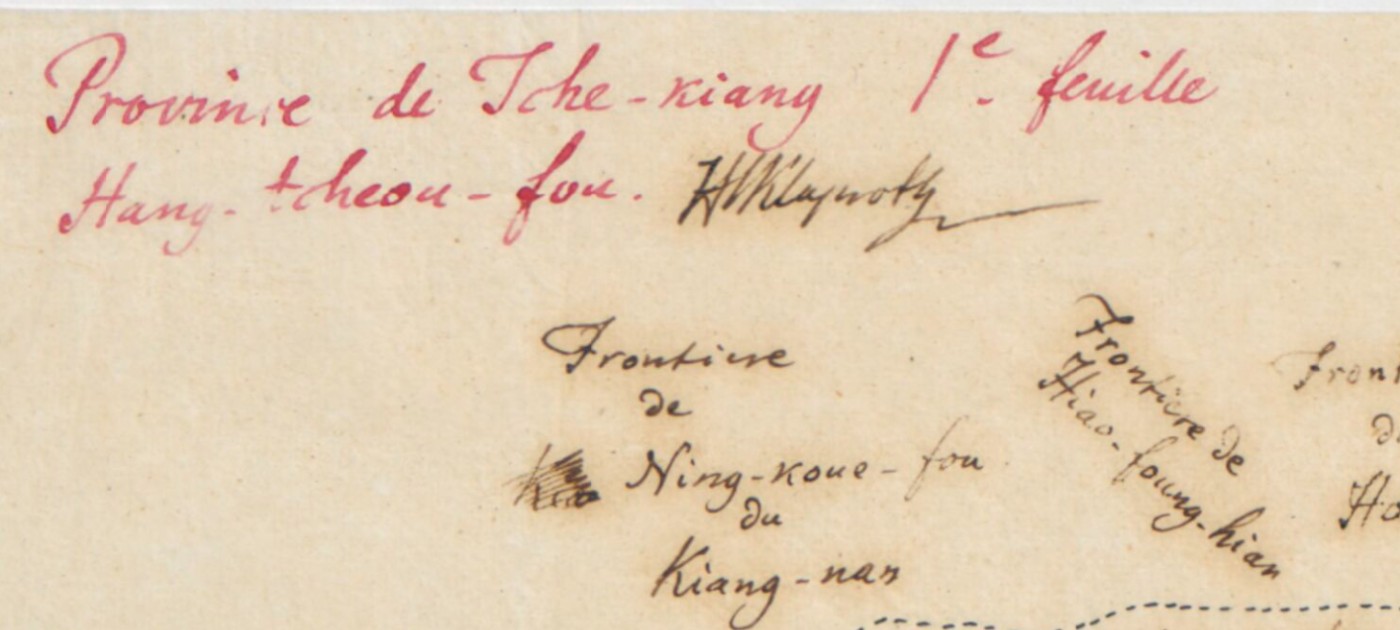 Province de Tche-kiang 1e. feuille
Hang-tcheou-fou. HJKlaproth
Frontiere
de
Ning-koue-fou
du
Kiang-nan
Frontiere de
Hiao-foung-hian
Front
d
Ho